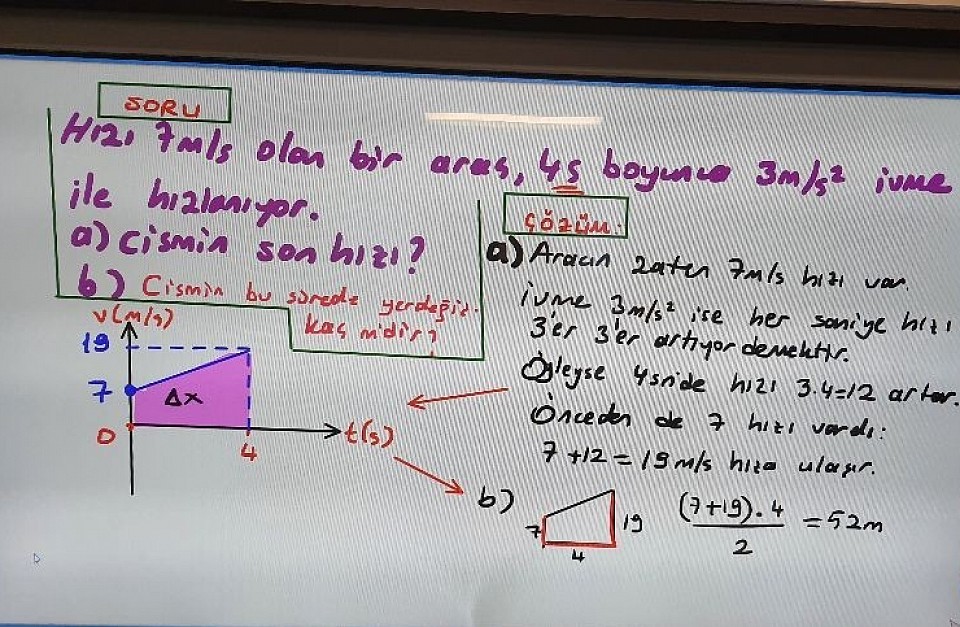 SORU
Hızı 7m/s olan bir araç, 4s boyunca 3m/s² ivme
ile hızlanıyor.
a) Cismin son hızı?
b) Cismin bu sürede yerdeğiş.
kaç m'dir?
ÇÖZÜM
a) Aracın zaten 7m/s hızı var.
ivme 3m/s² ise her saniye hızı
3'er 3'er artıyor demektir.
Öyleyse 4snide hızı 3.4=12 artar.
Önceden de 7 hızı vardı:
7+12=19m/s hıza ulaşır.
v(m/s)
19
7
Δx
0
4
t(s)
b)
7
19
4
(7+19).4
2
=52m